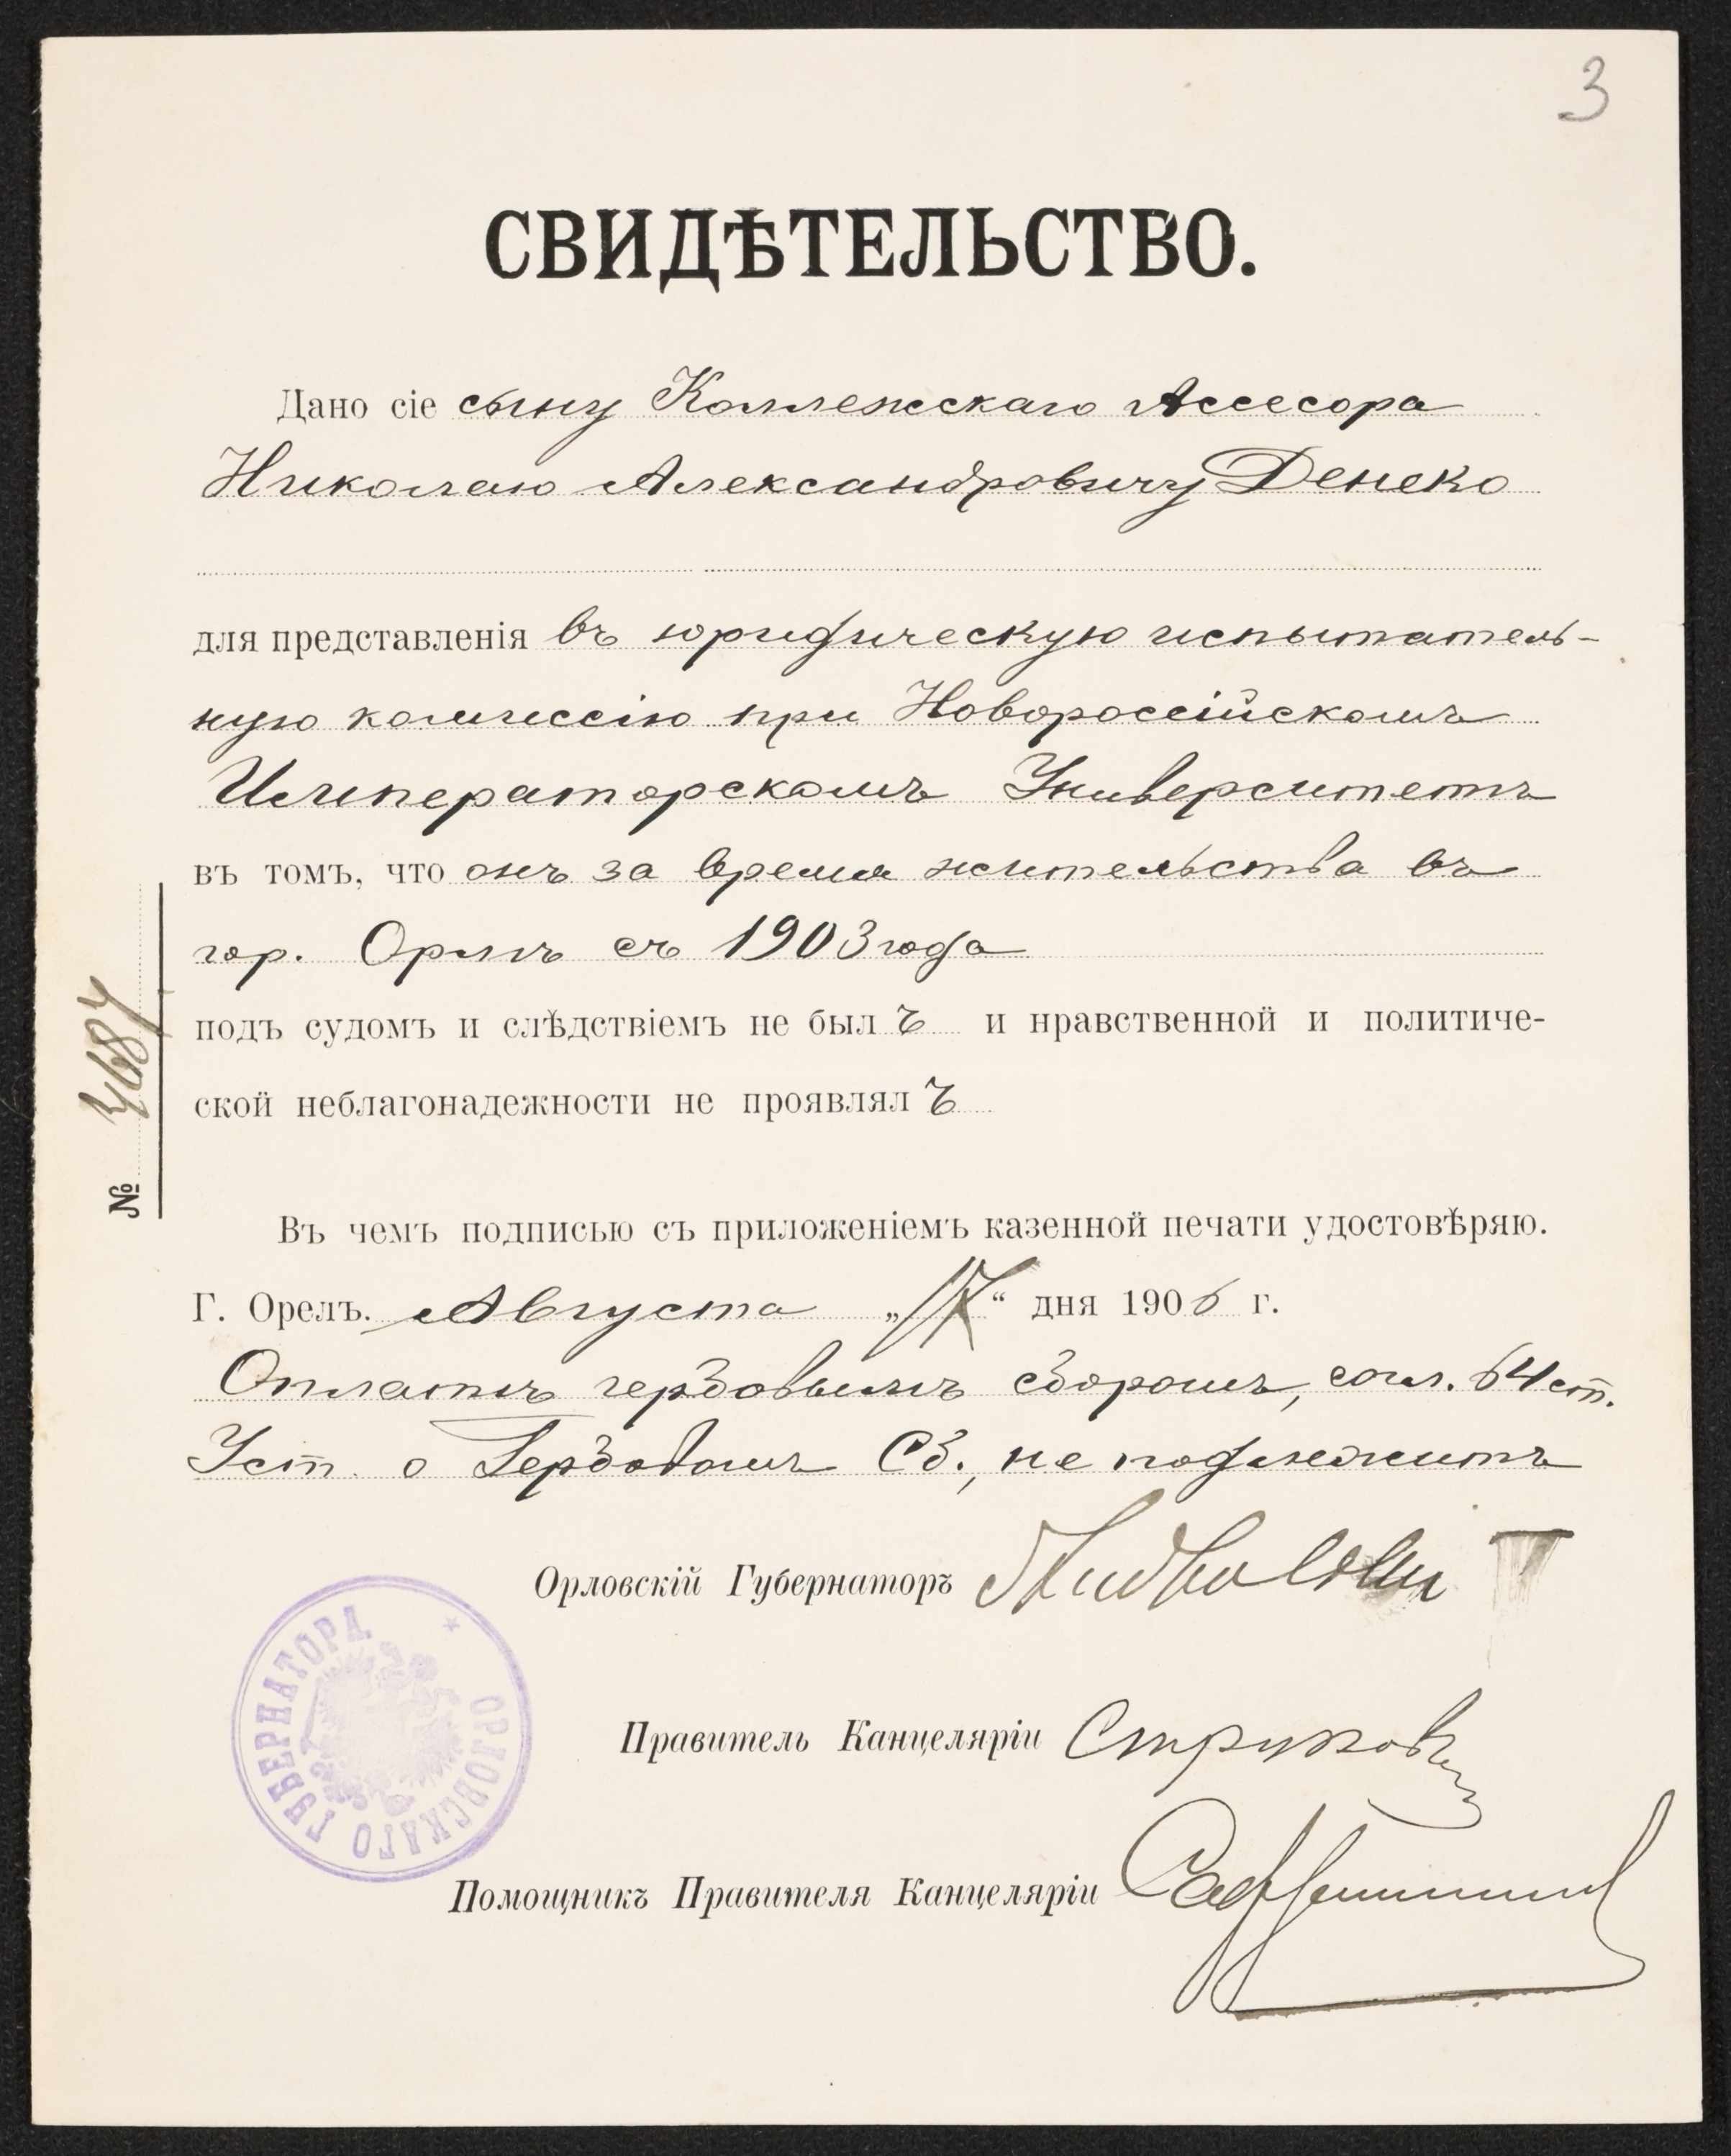 3
СВИДѢТЕЛЬСТВО.
Дано сіе сыну Коллежскаго Ассесора
Николаю Александровичу Денеко
для представленія въ юридическую испытатель-
ную комиссію при Новороссійскомъ
Императорскомъ Университетѣ
въ томъ, что онъ за время жительства въ
гор. Орлѣ съ 1903 года
подъ судомъ и слѣдствіемъ не былъ и нравственной и политиче-
ской неблагонадежности не проявлялъ
№
Въ чемъ подписью съ приложеніемъ казенной печати удостовѣряю.
Г. Орелъ. Августа „17“ дня 1906 г.
Оплатѣ гербовымъ сборомъ, согл. 64 ст.
Уст. о Гербовомъ Сб., не подлежитъ
Орловскій Губернаторъ
Правитель Канцеляріи Струковъ
Помощникъ Правителя Канцеляріи
ОРЛОВСКАГО ГУБЕРНАТОРА